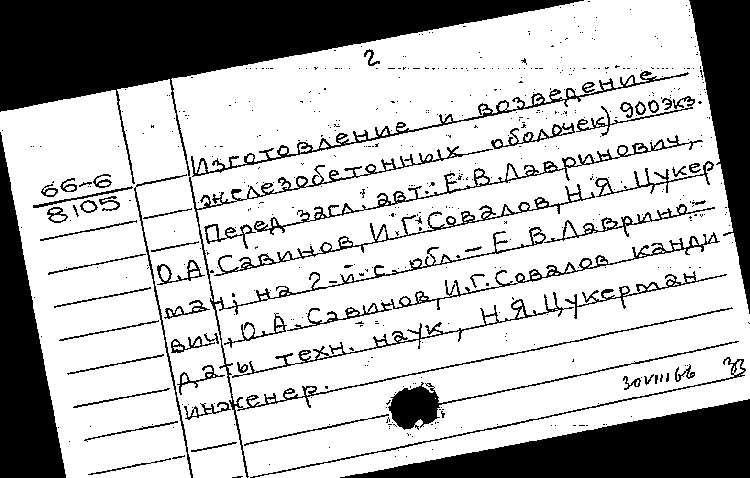 2
Изготовление и возведение
66-6
8105
железобетонных оболочек). 900 экз.
Перед загл. авт.: Е.В. Лавринович,
О.А. Савинов, И.Г. Совалов, Н.Я. Цукер-
ман; на 2-й с. обл. – Е.В. Лаврино-
вич, О.А. Савинов, И.Г. Совалов канди-
даты техн. наук, Н.Я. Цукерман
инженер.
30 VIII 66